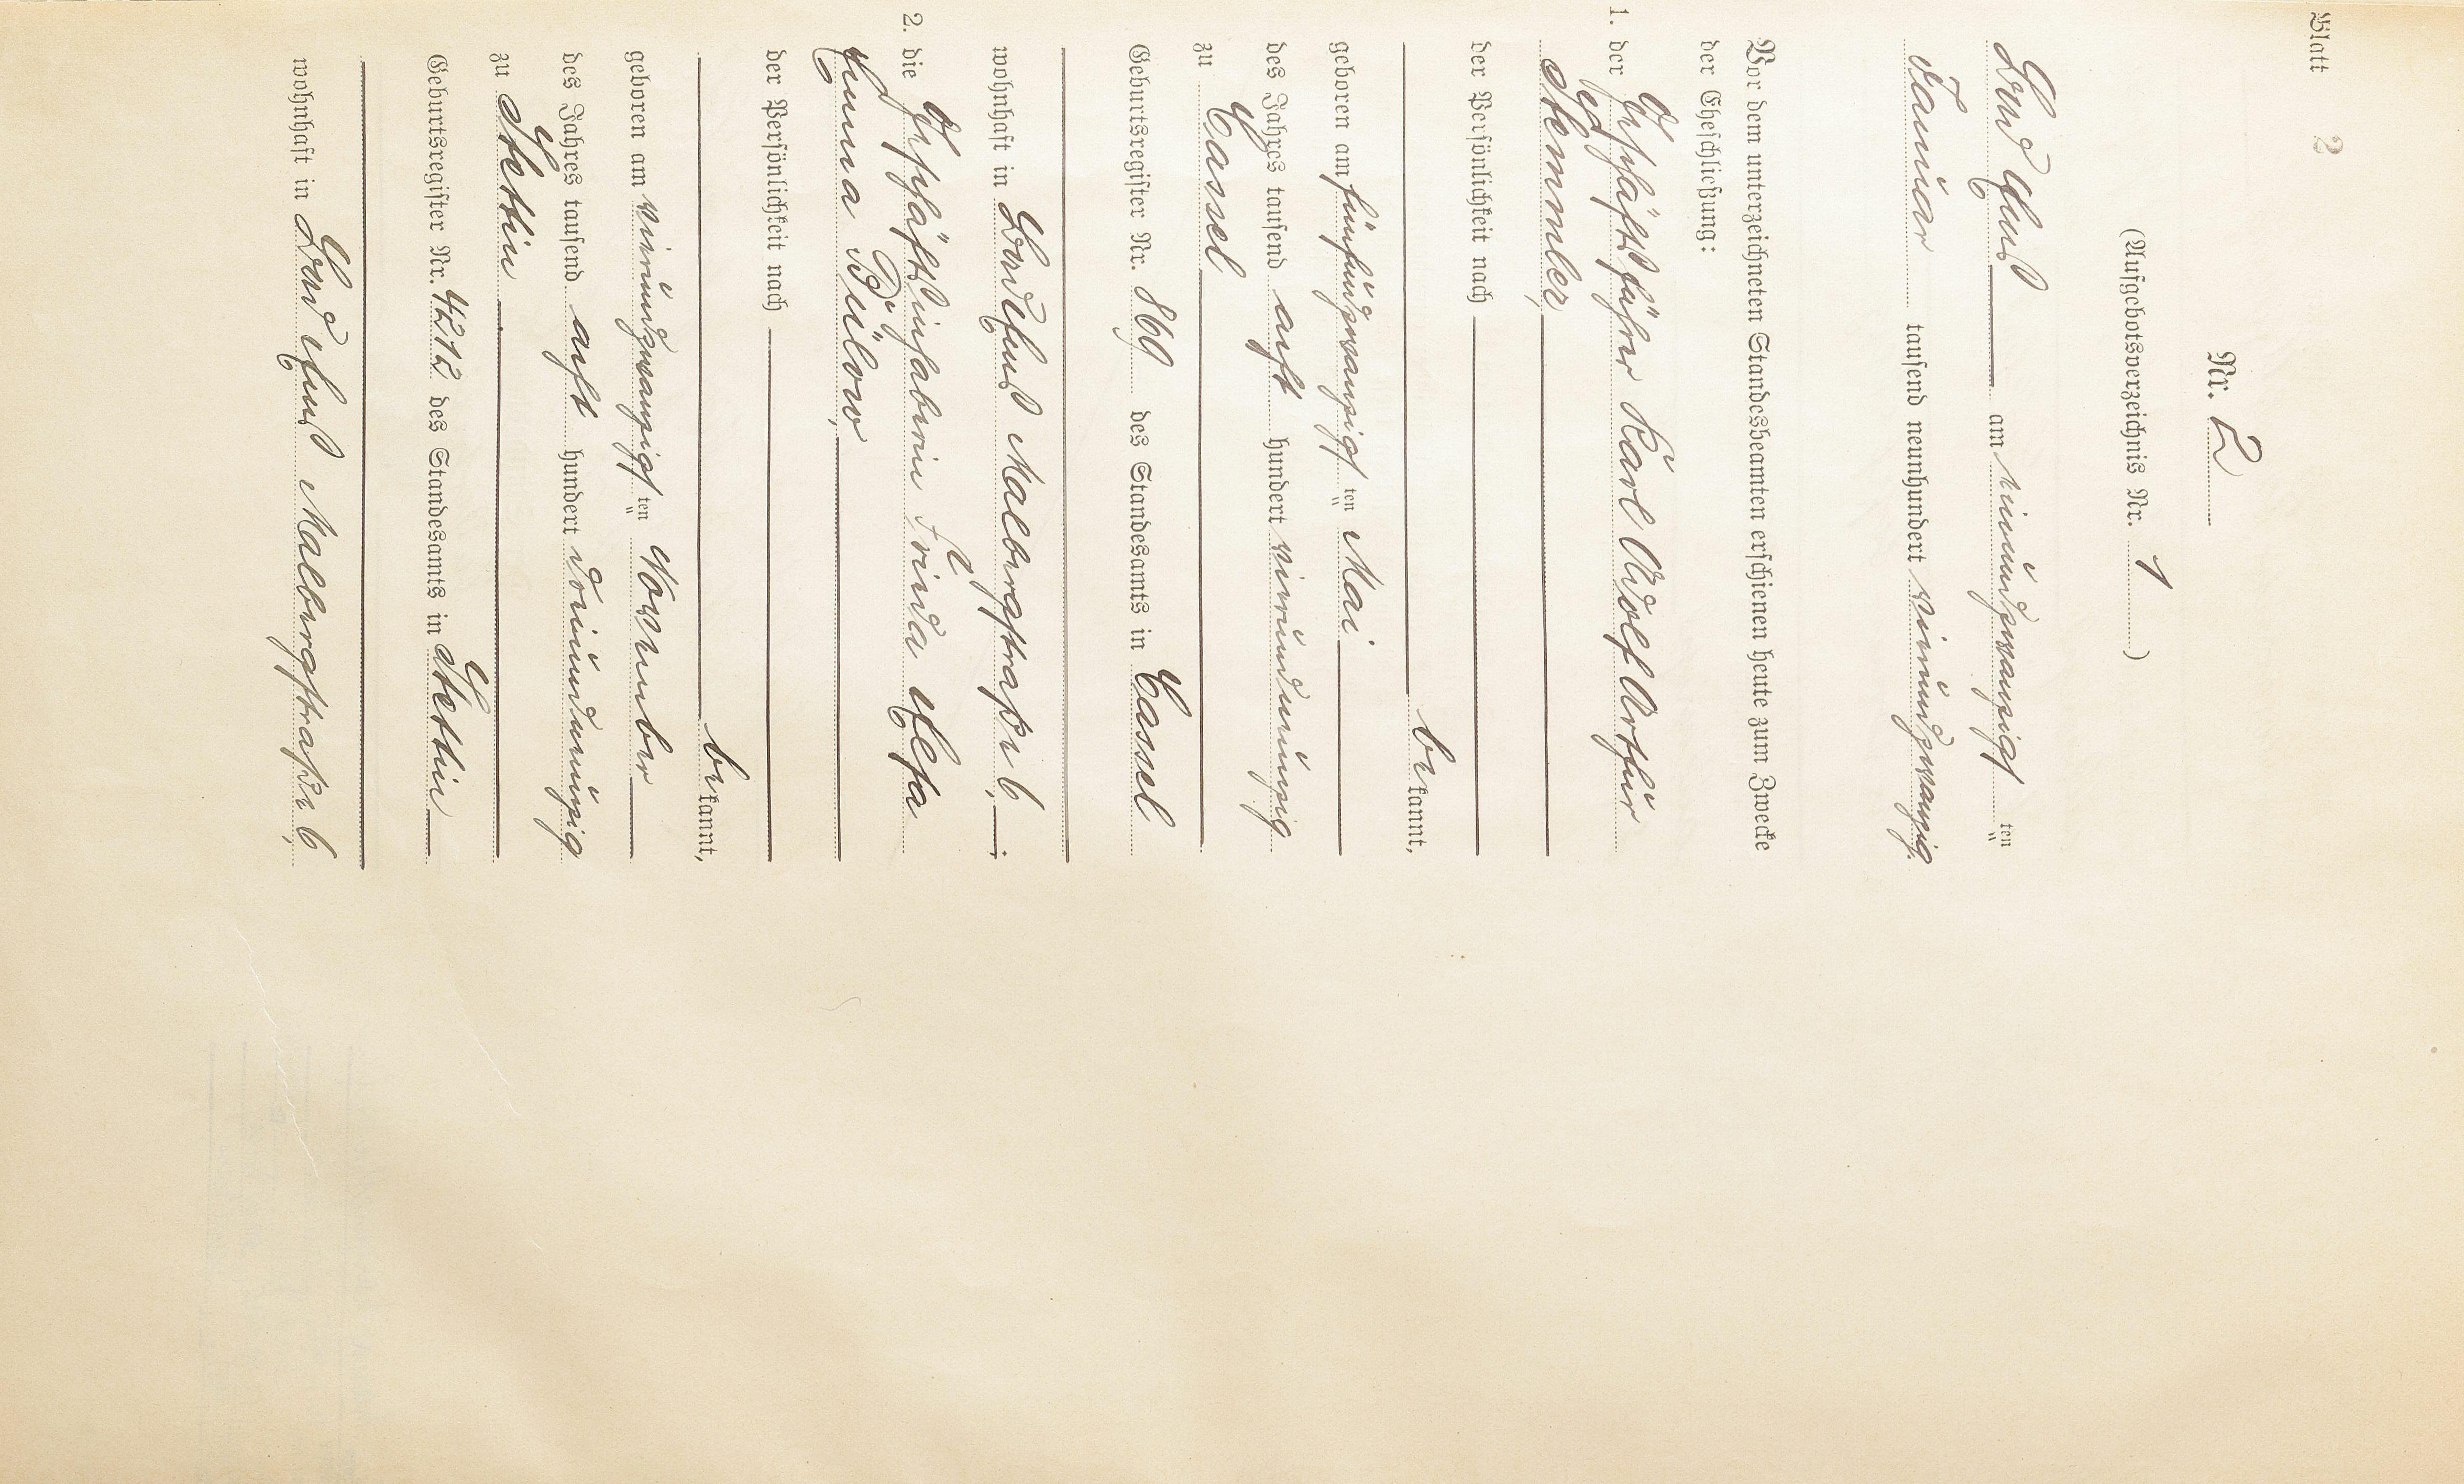 Blatt 2
Nr. 2
(Aufgebotsverzeichnis Nr. 1)
Bad Ems am einundzwanzigsten
Januar tausend neunhundert vierundzwanzig.
Vor dem unterzeichneten Standesbeamten erschienen heute zum Zwecke
der Eheschließung:
1. der Geschäftsführer Karl Adolf Artur
Stemmler,
der Persönlichkeit nach
bekannt,
geboren am fünfundzwanzigsten Mai
des Jahres tausend acht hundert vierundneunzig
zu Cassel
Geburtsregister Nr. 869 des Standesamts in Cassel
wohnhaft in Bad Ems Malbergstraße 6,;
2. die Geschäftsinhaberin Frieda Elsa
Emma Bülow,
der Persönlichkeit nach
bekannt,
geboren am vierundzwanzigsten November
des Jahres tausend acht hundert dreiundneunzig
zu Stettin,
Geburtsregister Nr. 4212 des Standesamts in Stettin
wohnhaft in Bad Ems Malbergstraße 6,